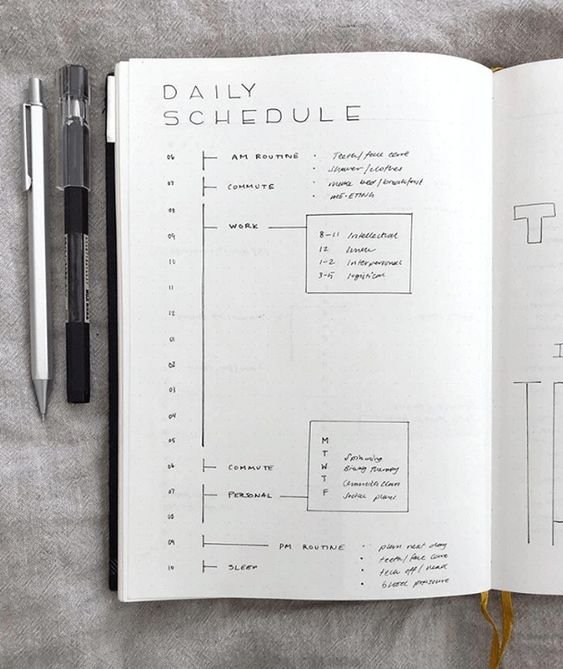 DAILY
SCHEDULE
06 AM ROUTINE • Teeth/face care
• shower/clothes
07 COMMUTE • make bed/breakfast
• ME-ETING
08
09 WORK
8-11 Intellectual
12 lunch
1-2 interpersonal
3-5 logistical
10
11
12
01
02
03
04
05
06 COMMUTE
07 PERSONAL
M
T Spinning
W
T class
F social plans
08
09 PM ROUTINE • plan next day
• teeth/face care
• tech off/read
10 SLEEP • blood pressure
T
I